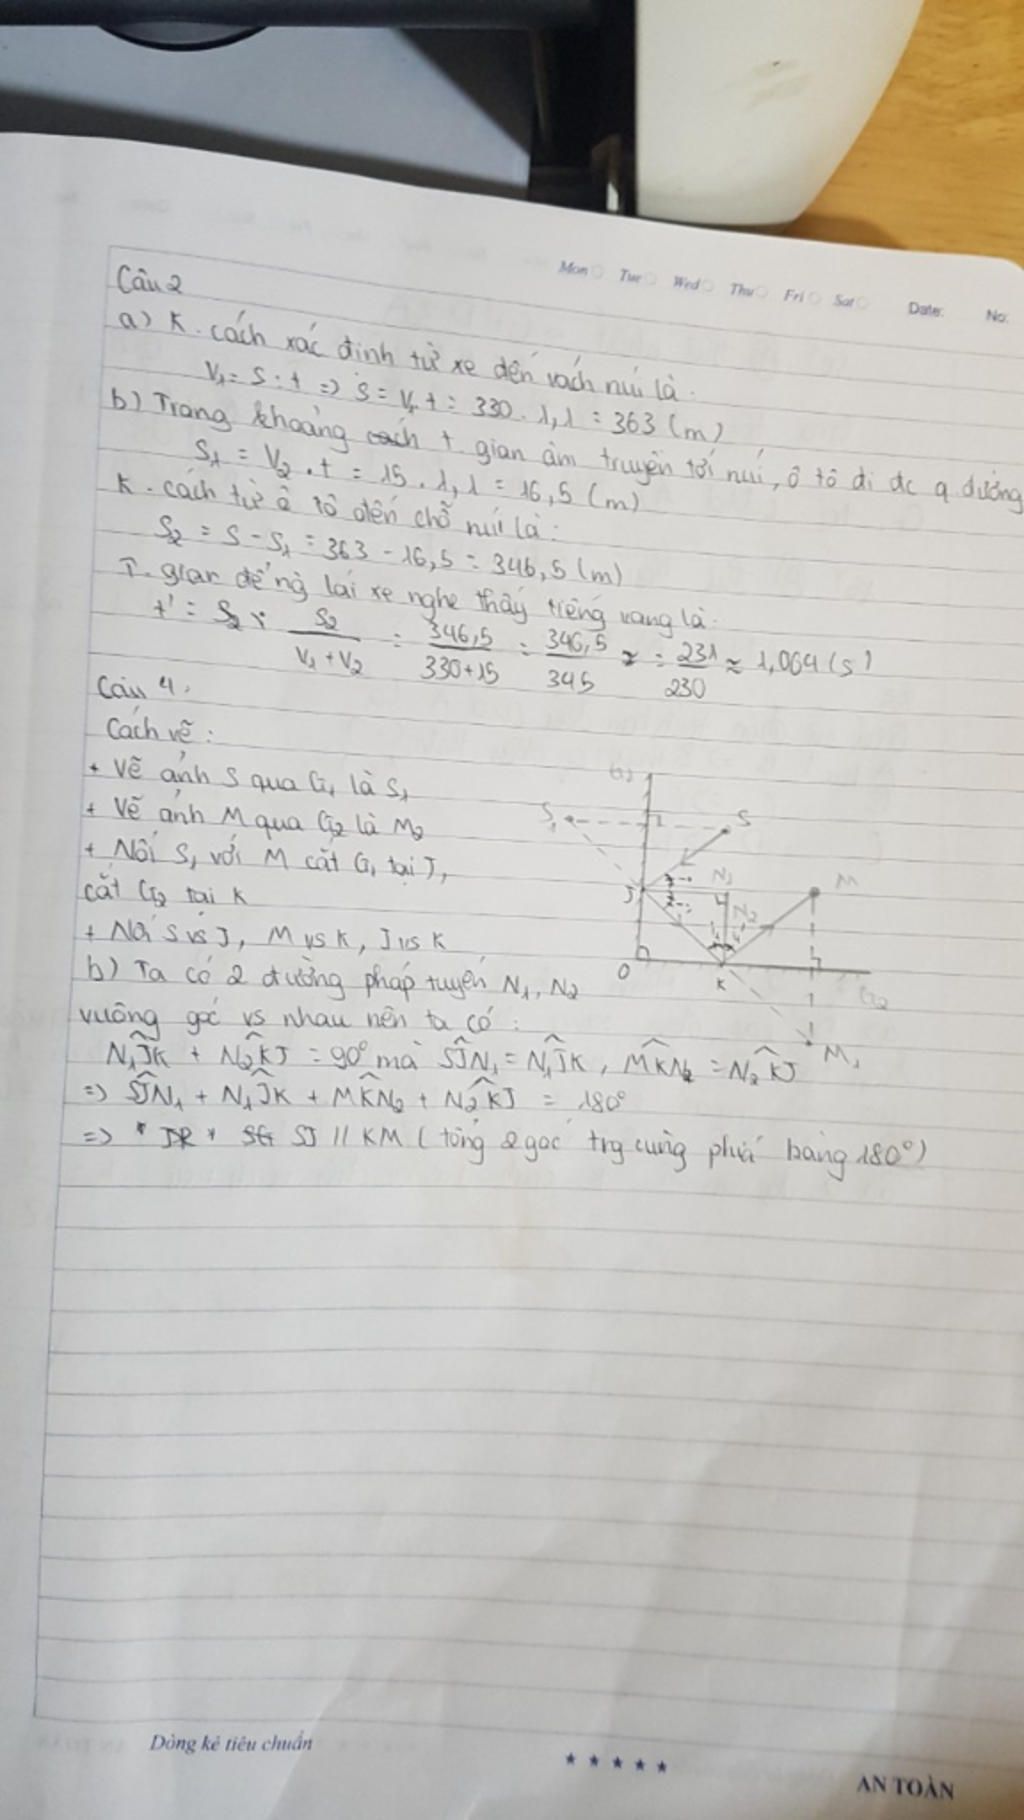 Mon Tue Wed Thu Fri Sat Date: No:
Câu 2
a) K. cách xác định từ xe đến vách núi là:
V₁ = S : t => S = V₁.t = 330 . 1,1 = 363 (m)
b) Trong khoảng t. gian âm truyền tới núi, ô tô đi đc q. đường
S₁ = V₂ . t = 15 . 1,1 = 16,5 (m)
K. cách từ ô tô đến chỗ núi là:
S₂ = S - S₁ = 363 - 16,5 = 346,5 (m)
T. gian để ng lái xe nghe thấy tiếng vang là:
t' = S₂ : S₂/(V₁ + V₂) = 346,5/(330+15) = 346,5/345 ≈ = 231/230 ≈ 1,004 (s)
Câu 4.
Cách vẽ:
+ Vẽ ảnh S qua G₁ là S₁
+ Vẽ ảnh M qua G₂ là M₂
+ Nối S₁ với M cắt G₁ tại J,
cắt G₂ tại K
+ Nối S vs J, M vs K, J vs K
G₁
S₁
S
J
N₁
N₂
M
O
K
G₂
M₁
b) Ta có 2 đường pháp tuyến N₁, N₂
vuông góc vs nhau nên ta có:
N₁JK + N₂KJ = 90° mà SJN₁ = N₁JK, MKN₂ = N₂KJ
=> SJN₁ + N₁JK + MKN₂ + N₂KJ = 180°
=> SJ // KM (tổng 2 góc trg cùng phía bằng 180°)
Dòng kẻ tiêu chuẩn
★ ★ ★ ★ ★
AN TOÀN